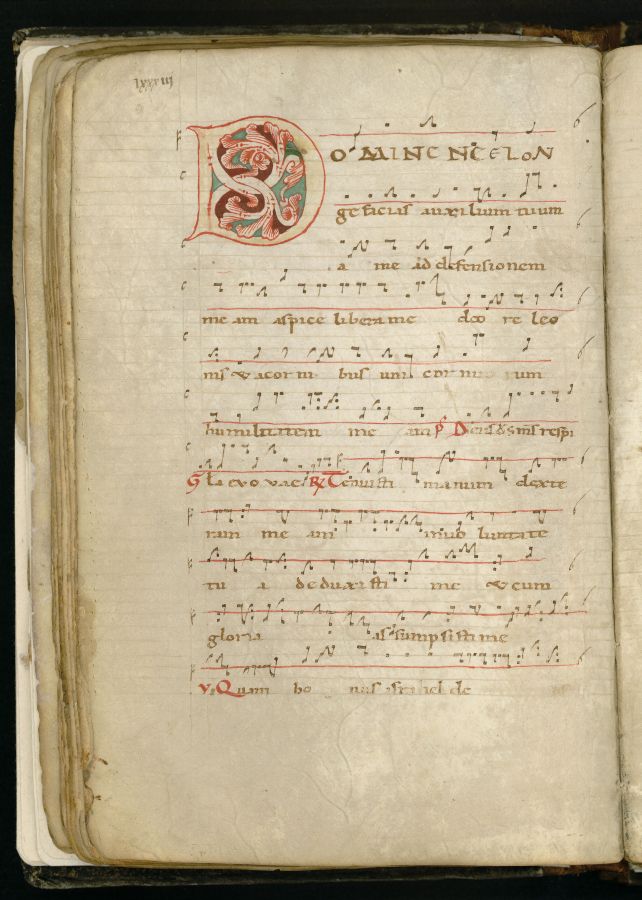 lxxxiij
DOMINE NE LON
ge facias auxilium tuum
a me ad defensionem
meam aspice libera me de o re leo
nis & a cornu bus uni cor nuo rum
humilitatem me am ps Deus ds ms respi
Gla evovae R Tenuisti manum dexte
ram me am in uo luntate
tu a deduxisti me & cum
gloria as sumpsisti me
v Quam bo nus israhel ds